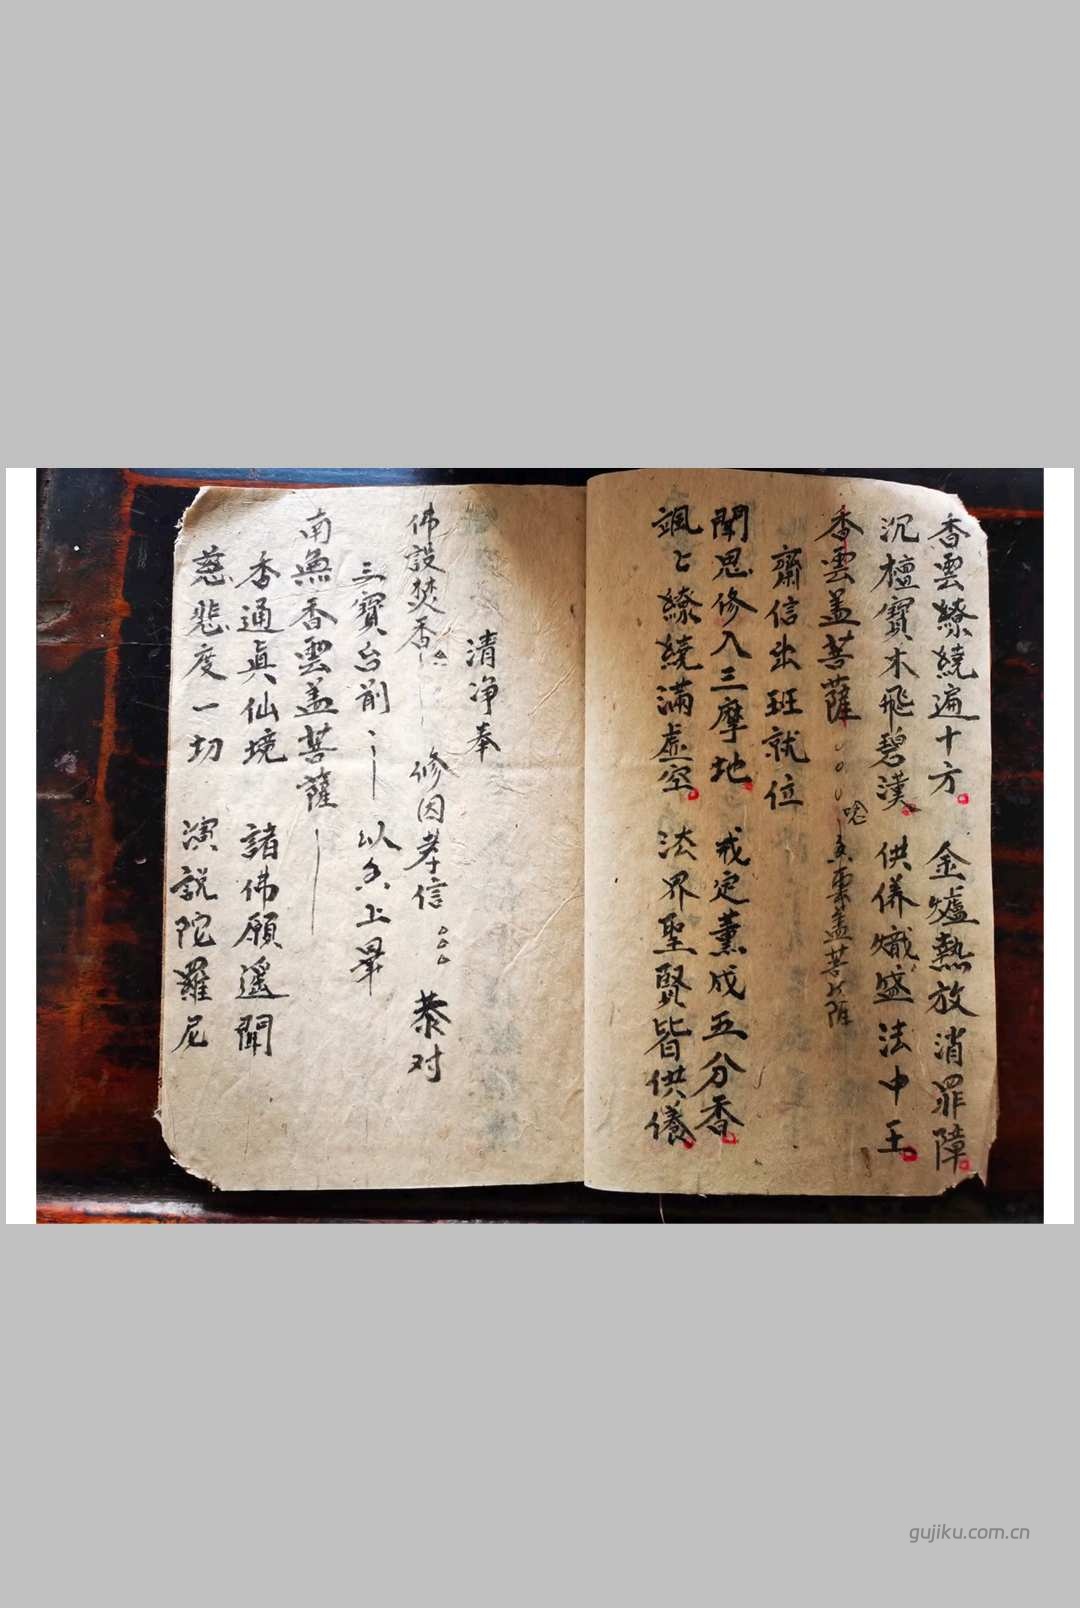 香雲繚繞遍十方 金爐熱放消罪障
沉檀寶木飛碧漢 供养熾盛法中王
香雲盖菩薩
盖菩薩
齋信出班就位
聞思修入三摩地 戒定薰成五分香
颯〻繚繞滿虛空 法界聖賢皆供養
清净奉
佛設焚香 修因孝信 恭对
三寶台前 以 上畢
南無香雲盖菩薩
香通眞仙境 諸佛願遥聞
慈悲度一切 演説陀羅尼
gujiku.com.cn